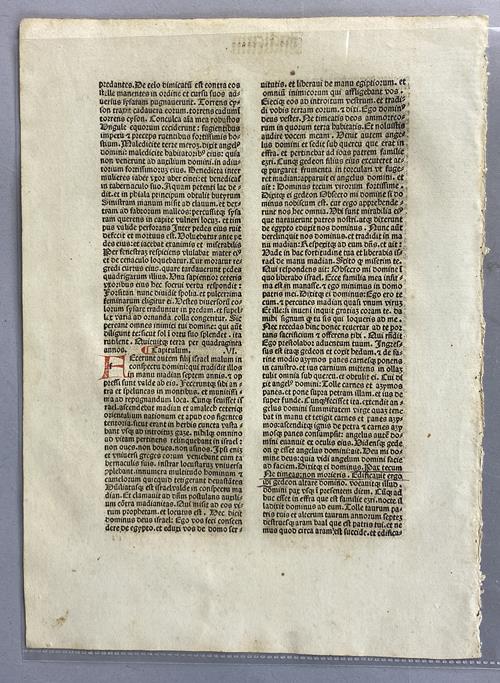 predantes. De celo dimicatū est contra eos
stelle manentes in ordine et cursu suo ad
uersus sysaram pugnauerunt. Torrens cy
son traxit cadauera eorum. torrens cadumi
torrens cyson. Conculca aīa mea robustos
Ungule equorum ceciderunt: fugientibus
impetu et preceps ruentibus fortissimis ho
stium. Maledicite terre meroz. dixit angels
domini: maledicite habitatoribus eius: quia
non venerunt ad auxilium domini. in adiu
torium fortissimorum eius. Benedicta inter
mulieres iabel vxor aber cinei: et benedicat̄
in tabernaculo suo. Aquam petenti lac de
dit. et in phiala principum obtulit butyrum
Sinistram manum misit ad clauum. et dex
tram ad fabrorum malleos: percussitqȝ sysa
ram querens in capite vulneri locum. et tim
pus valide perforans Inter pedes eius ruit
defecit et mortuus est. Uoluebatur ante pe
des eius: et iacebat exanimis et miserabilis
Per fenestras respiciens vlulabat mater ei
et de cenaculo loquebatur. Cur moratur re
gredi currus eius. quare tardauerunt pedes
quadrigarum illius. Una sapientior ceteris
vxoribus eius hec socrui verba respondit
Forsitan nunc diuidit spolia. et pulcerrima
feminarum eligitur ei. Uestes diuersorū co
lorum sysare traduntur in predam. et supel
lex varia ad ornanda colla congeritur. Sic
pereant omnes inimici tui domine: qui aūt
diligunt te: sicut sol ī ortu suo splendet . ita
rutilent. Quieuitqȝ terra per quadraginta
annos. Capitulum. .VI.
Fecerunt autem filij israel malum in
conspectu domini: qui tradidit illos
in manu madian septem annis. et op
pressi sunt valde ab eis. Feceruntqȝ sibi an
tra et speluncas in montibus. et munitissi
ma ad repugnandum loca. Cunqȝ seuisset is
rael. ascendebat madian et amalech ceteriqȝ
orientalium nationum: et apud eos figentes
tentoria. sicut erant in herbis cuncta vasta
bant vsqȝ ad introitum gaze. nihilqȝ omnino
ad vitam pertinens relinquebant in israel:
non oues. non boues. non asinos. Ipsi eniȝ
et vniuersi greges eorum veniebant cum ta
bernaculis suis. instar locustarum vniuersa
cōplebant. innumera multitudo hominum et
camelorum quicquid tetigerant deuastātes
Humiliatusqȝ est israel valde in conspectu ma
dian. Et clamauit ad dn̄m postulans auxiliū
um cōtra madianitas. Qui misit ad eos vi
rum prophetam. et locutus est. Hec dicit
dominus deus israel: Ego vos feci conscen
dere de egypto. et eduxi vos de domo ser
uitutis. et liberaui de manu egiptiorum. et
omniū inimicorum qui affligebant vos.
Eieciqȝ eos ad introitum vestrum. et tradidi
vobis terram eorum. et dixi. Ego dominus
deus vester. Ne timeatis deos amorreo
rum in quorum terra habitatis. Et noluistis
audire vocem meam. Uenit autem ange
lus domini et sedit sub quercu que erat in
effra. et pertinebat ad ioas patrem familie
ezri. Cunqȝ gedeon filius eius excuteret at
qȝ purgaret frumenta in torculari vt fuge
ret madian: apparuit ei angelus domini. et
ait: Dominus tecum virorum fortissime.
Dixitqȝ ei gedeon Obsecro mi domine si do
minus nobiscum est. cur ergo apprehende
runt nos hec omnia. Ubi sunt mirabilia ei
que narrauerunt patres nostri. atqȝ dixerunt
de egypto eduxit nos dominus. Nunc aūt
dereliquit nos dominus. et tradidit in ma
nu madian: Respexitqȝ ad eum dn̄s. et ait:
Uade in hac fortitudine tua et liberabis is
rael de manu madian. Scito qȝ miserim te.
Qui respondens ait: Obsecro mi domine ī
quo liberabo israel. Ecce familia mea infir
ma est in manasse. et ego minimus in domo
patris mei. Dixitqȝ ei dominus: Ego ero te
cum. et percuties madian quasi vnum virum
Et ille: si inueni inquit gratiaȝ coram te. da
mihi signum qȝ tu sis qui loqueris ad me.
Nec recedas hinc donec reuertar ad te. por
tans sacrificium et offerens tibi. Qui rn̄dit
Ego prestolabor aduentum tuum. Ingres
sus est itaqȝ gedeon et coxit hedum. et de fa
rine modio azymos panes carnesqȝ ponens
in canistro. et ius carnium mittens in ollaȝ
tulit omnia sub quercu. et obtulit ei. Cui di
xit angelus domini: Tolle carnes et azymos
panes. et pone supra petram illam. et ius de
super funde. Cunqȝ fecisset ita. extendit an
gelus domini summitatem virge quaȝ tene
bat in manu et tetigit carnes et panes azy
mos: ascenditqȝ ignis de petra et carnes azy
mosqȝ panes consumpsit: angelus autē do
mini euanuit ex oculis eius. Uidensqȝ gede
on qȝ esset angelus domini ait. Heu mi do
mine deus: quia vidi angelum domini facie
ad faciem. Dixitqȝ ei dominus. Pax tecum
Ne timeas: non morieris. Edificauit ergo
ibi gedeon altare domino. vocauitqȝ illud
domini pax vsqȝ ī presentem diem. Cūqȝ ad
huc esset in effra que est familie ezri. nocte il
la dixit dominus ad eum. Tolle taurum pa
tris tui et alterum taurum annorum septeȝ
destruesqȝ aram baal que est patris tui. et ne
mus quod circa aram est succide. et edifica